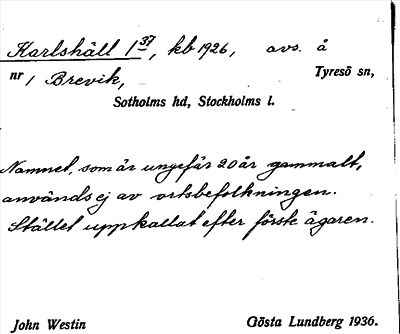 Karlshäll 1³⁷, kb 1926, avs. å
nr 1 Brevik, Tyresö sn,
Sotholms hd, Stockholms l.
Namnet, som är ungefär 20 år gammalt,
används ej av ortsbefolkningen.
Stället uppkallat efter förste ägaren.
John Westin Gösta Lundberg 1936.